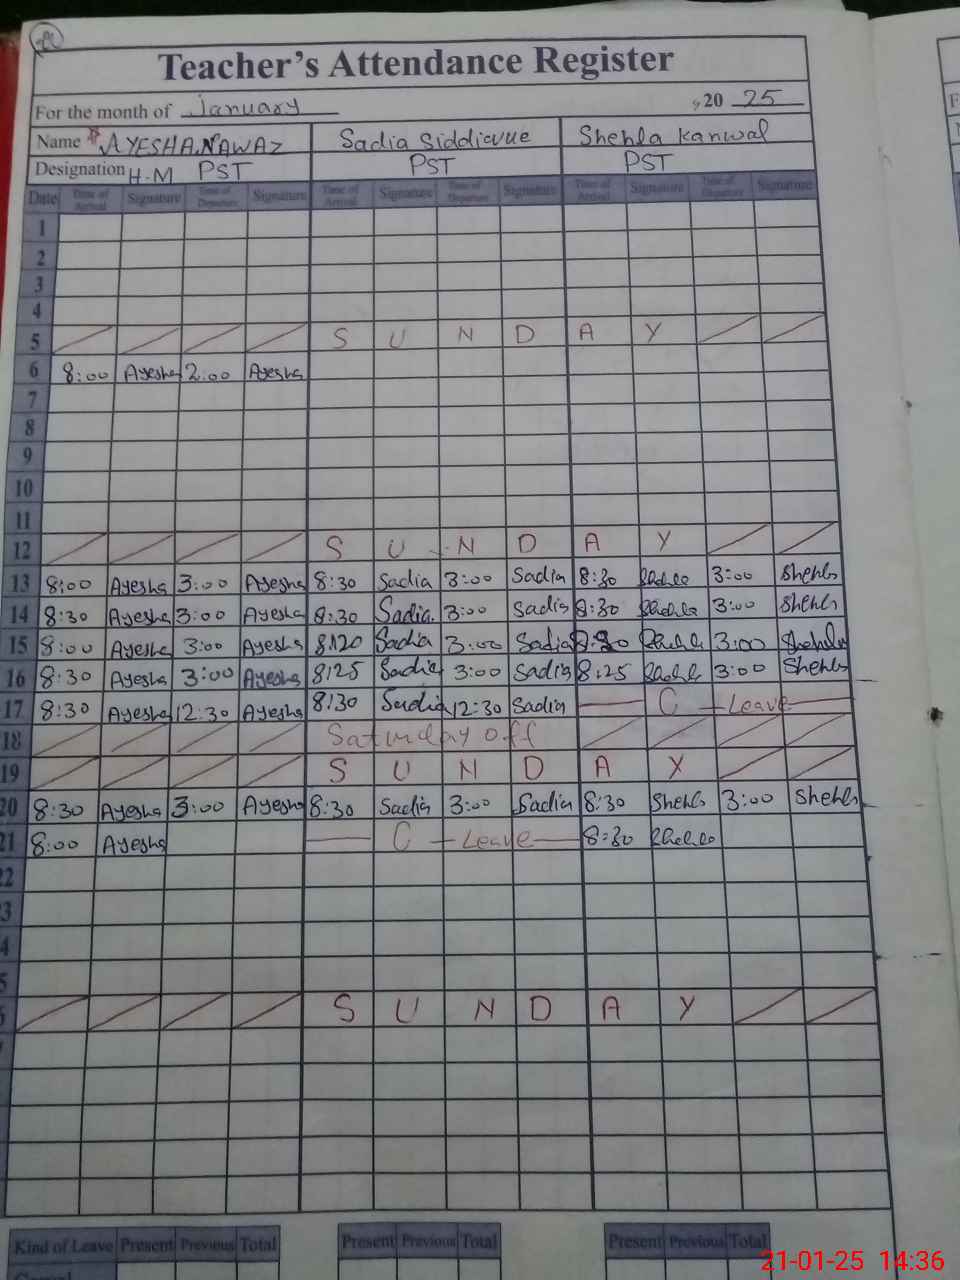 Teacher's Attendance Register
For the month of January ,20 25
Name AYESHA NAWAZ Sadia Siddicvue Shehla Kanwal
Designation H.M PST PST PST
Date Time of Arrival Signature Time of Departure Signature Time of Arrival Signature Time of Departure Signature Time of Arrival Signature Time of Departure Signature
1
2
3
4
5 S U N D A Y
6 8:00 Ayesha 2:00 Ayesha
7
8
9
10
11
12 S U N D A Y
13 8:00 Ayesha 3:00 Ayesha 8:30 Sadia 3:00 Sadia 8:30 3:00 Shehla
14 8:30 Ayesha 3:00 Ayesha 8:30 Sadia 3:00 Sadia 8:30 3:00 Shehla
15 8:00 Ayesha 3:00 Ayesha 8:20 Sadia 3:00 Sadia 3:00 Shehla
16 8:30 Ayesha 3:00 Ayesha 8:25 Sadia 3:00 Sadia 8:25 3:00 Shehla
17 8:30 Ayesha 12:30 Ayesha 8:30 Sadia 12:30 Sadia C - Leave
18 Saturday off
19 S U N D A Y
20 8:30 Ayesha 3:00 Ayesha 8:30 Sadia 3:00 Sadia 8:30 Shehla 3:00 Shehla
21 8:00 Ayesha C - Leave 8:30
22
3
4
5
S U N D A Y
Kind of Leave Present Previous Total Present Previous Total Present Previous Total
21-01-25 14:36